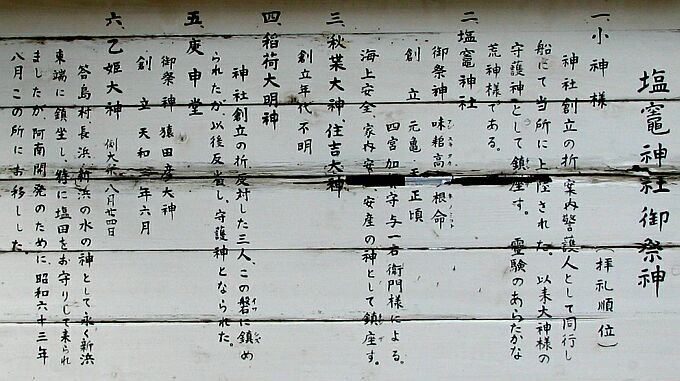 塩竈神社御祭神
(拝礼順位)
一、小神様
神社創立の折、案内警護人として同行し
船にて当所に上陸された。以来大神様の
守護神として鎮座す。霊験のあらたかな
荒神様である。
二、塩竈神社
御祭神 味耜高 根命
創立 元亀・天正頃
四宮加 守与一右衛門様による。
海上安全、家内安 安産の神として鎮座す。
三、秋葉大神、住吉大神
創立年代不明
四、稲荷大明神
神社創立の折、反対した三人、この磐に鎮め
られたが以後反省し、守護神となられた。
五、庚申堂
御祭神 猿田彦大神
創立 天和 年六月
六、乙姫大神 例大祭、八月廿四日
答島村長浜、新浜の水の神として永く新浜
東端に鎮坐し、特に塩田をお守りして来られ
ましたが、阿南開発のために、昭和六十三年
八月この所にお移しした。